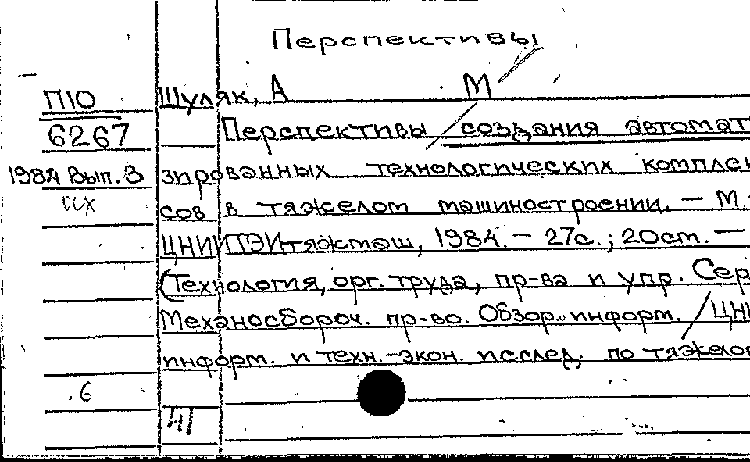 Перспективы
П10 Шуляк, А М
6267 Перспективы создания автомат
1984 Вып. 3 зированных технологических комплек
сов в тяжелом машиностроении. — М.
ЦНИИТЭИтяжмаш, 1984. – 27с.; 20см. —
(Технология, орг. труда, пр-ва и упр. Сер
Механосбороч. пр-во. Обзор. информ. / ЦНИ
информ. и техн.-экон. исслед. по тяжело
6
41